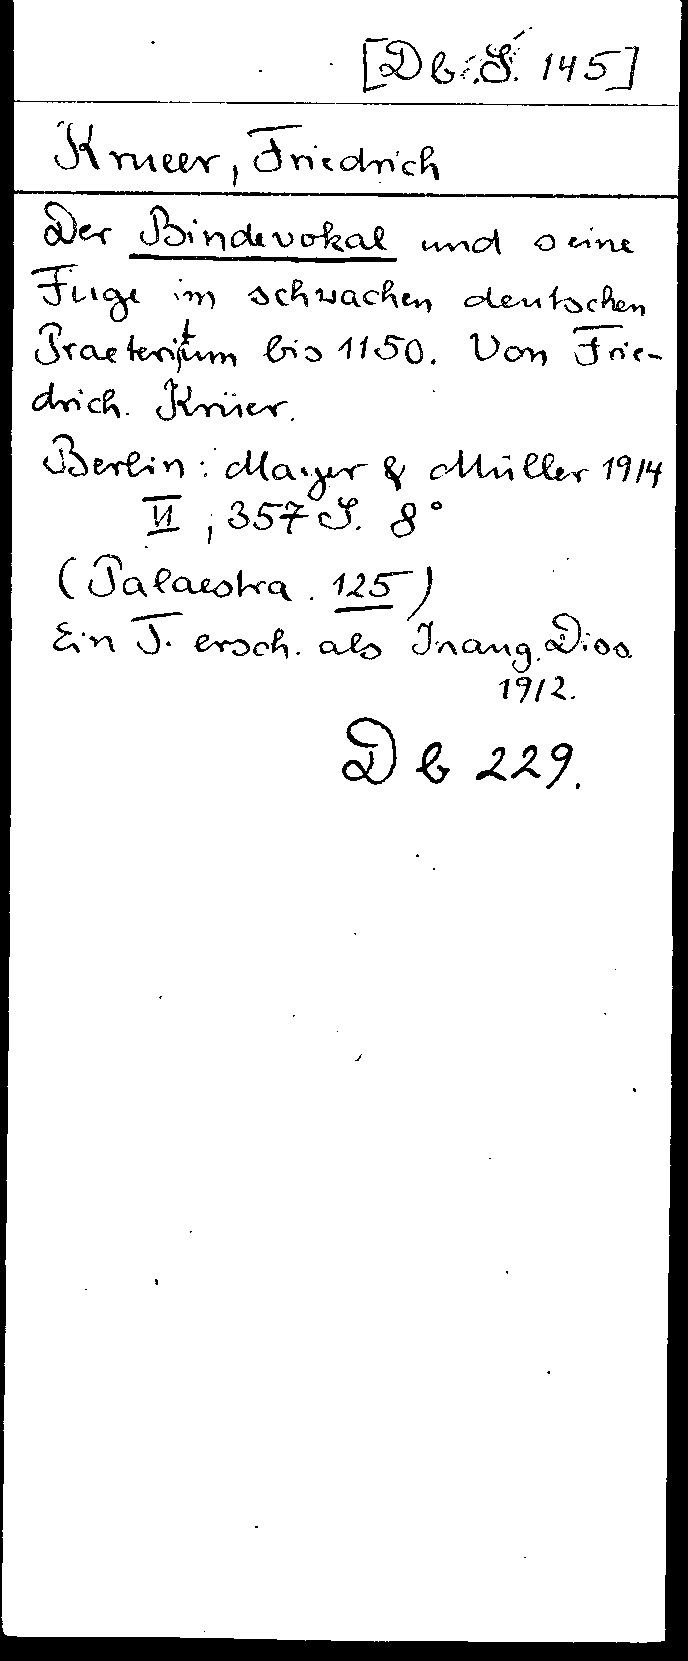 [Db. S. 145]
Krueer, Friedrich
Der Bindevokal und seine
Fuge im schwachen deutschen
Praeteritum bis 1150. Von Frie-
drich. Krüer.
Berlin: Mayer & Müller 1914
VI, 357 S. 8°
(Palaestra. 125)
Ein T. ersch. als Inaug. Diss.
1912.
Db 229.